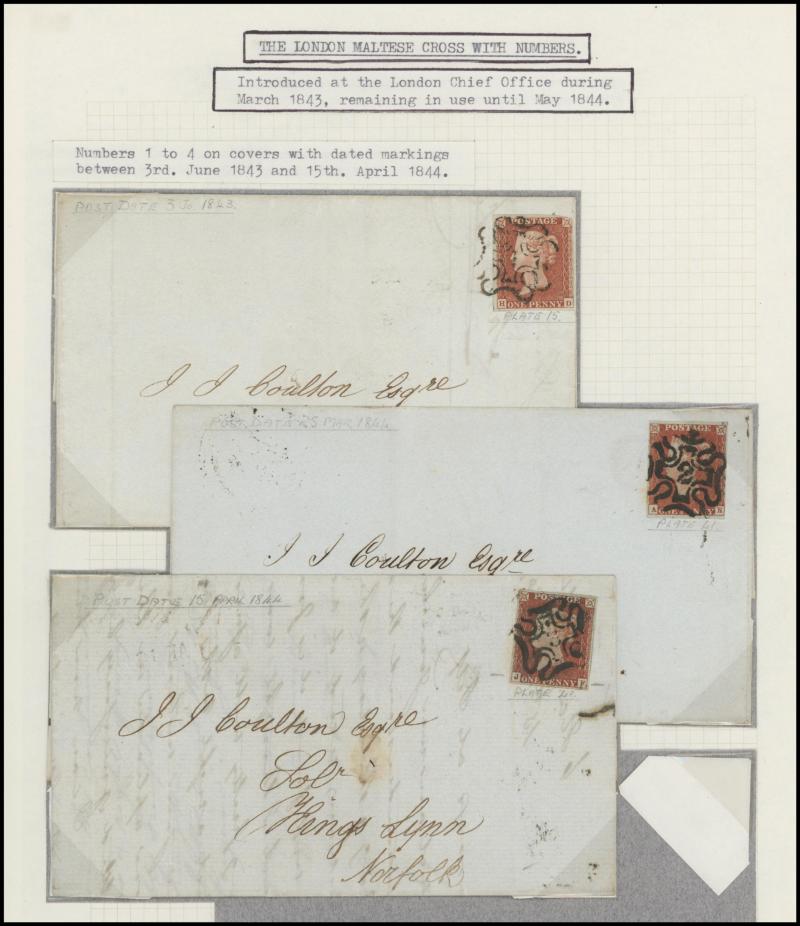 THE LONDON MALTESE CROSS WITH NUMBERS.
Introduced at the London Chief Office during
March 1843, remaining in use until May 1844.
Numbers 1 to 4 on covers with dated markings
between 3rd. June 1843 and 15th. April 1844.
POST DATE 3 JU 1843.
POSTAGE
H ONE PENNY D
PLATE 15.
J J Coulton Esqre
POST DATE 25 MAR 1844
POSTAGE
2
A
PLATE 41.
J J Coulton Esqre
POST DATE 15 APRL 1844
POSTAGE
J ONE PENNY F
PLATE
J J Coulton Esqre
Solr
Kings Lynn
Norfolk